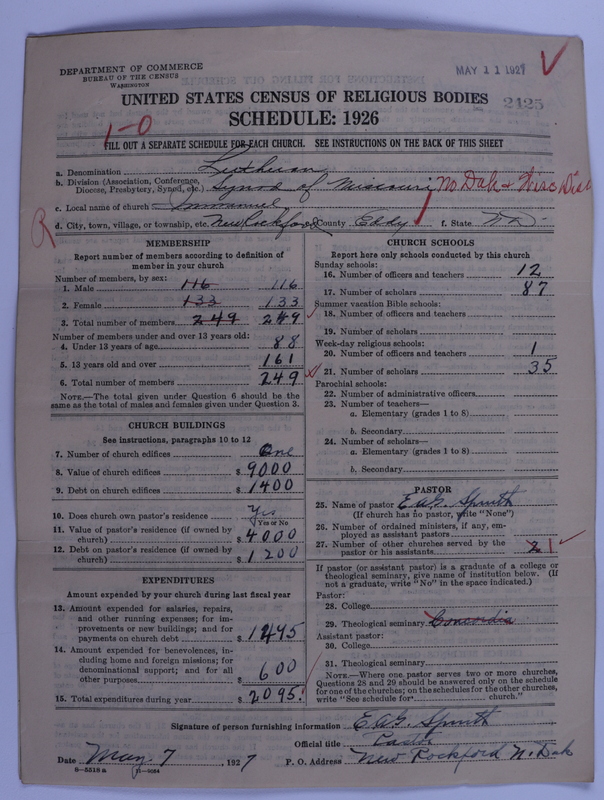 DEPARTMENT OF COMMERCE
BUREAU OF THE CENSUS
WASHINGTON
MAY 11 1927
UNITED STATES CENSUS OF RELIGIOUS BODIES
2425
SCHEDULE: 1926
1-0
FILL OUT A SEPARATE SCHEDULE FOR EACH CHURCH. SEE INSTRUCTIONS ON THE BACK OF THIS SHEET
a. Denomination Lutheran
b. Division (Association, Conference, Diocese, Presbytery, Synod, etc.) Synod of Missouri No. Dak & Disc Dist
c. Local name of church Immanuel
d. City, town, village, or township, etc. New Rockford County Eddy f. State N D
R
MEMBERSHIP
Report number of members according to definition of
member in your church
Number of members, by sex:
1. Male 116 116
2. Female 133 133
3. Total number of members 249 249
Number of members under and over 13 years old:
4. Under 13 years of age 88
5. 13 years old and over 161
6. Total number of members 249
NOTE.—The total given under Question 6 should be the
same as the total of males and females given under Question 3.
CHURCH BUILDINGS
See instructions, paragraphs 10 to 12
7. Number of church edifices One
8. Value of church edifices $ 9000
9. Debt on church edifices $ 1400
10. Does church own pastor's residence Yes
Yes or No
11. Value of pastor's residence (if owned by
church) $ 4000
12. Debt on pastor's residence (if owned by
church) $ 1200
EXPENDITURES
Amount expended by your church during last fiscal year
13. Amount expended for salaries, repairs,
and other running expenses; for im-
provements or new buildings; and for
payments on church debt $ 1495
14. Amount expended for benevolences, in-
cluding home and foreign missions; for
denominational support; and for all
other purposes $ 600
15. Total expenditures during year $ 2095
CHURCH SCHOOLS
Report here only schools conducted by this church
Sunday schools:
16. Number of officers and teachers 12
17. Number of scholars 87
Summer vacation Bible schools:
18. Number of officers and teachers
19. Number of scholars
Week-day religious schools:
20. Number of officers and teachers 1
21. Number of scholars 35
Parochial schools:
22. Number of administrative officers
23. Number of teachers—
a. Elementary (grades 1 to 8)
b. Secondary
24. Number of scholars—
a. Elementary (grades 1 to 8)
b. Secondary
PASTOR
25. Name of pastor E A G. Spruth
(If church has no pastor, write "None")
26. Number of ordained ministers, if any, em-
ployed as assistant pastors
27. Number of other churches served by the
pastor or his assistants 2 1
If pastor (or assistant pastor) is a graduate of a college or
theological seminary, give name of institution below. (If
not a graduate, write "No" in the space indicated.)
Pastor:
28. College
29. Theological seminary Concordia
Assistant pastor:
30. College
31. Theological seminary
NOTE.—Where one pastor serves two or more churches,
Questions 28 and 29 should be answered only on the schedule
for one of the churches; on the schedules for the other churches,
write "See schedule for church."
Signature of person furnishing information E A G. Spruth
Official title Pastor
Date May 7, 1927 P. O. Address New Rockford N. Dak